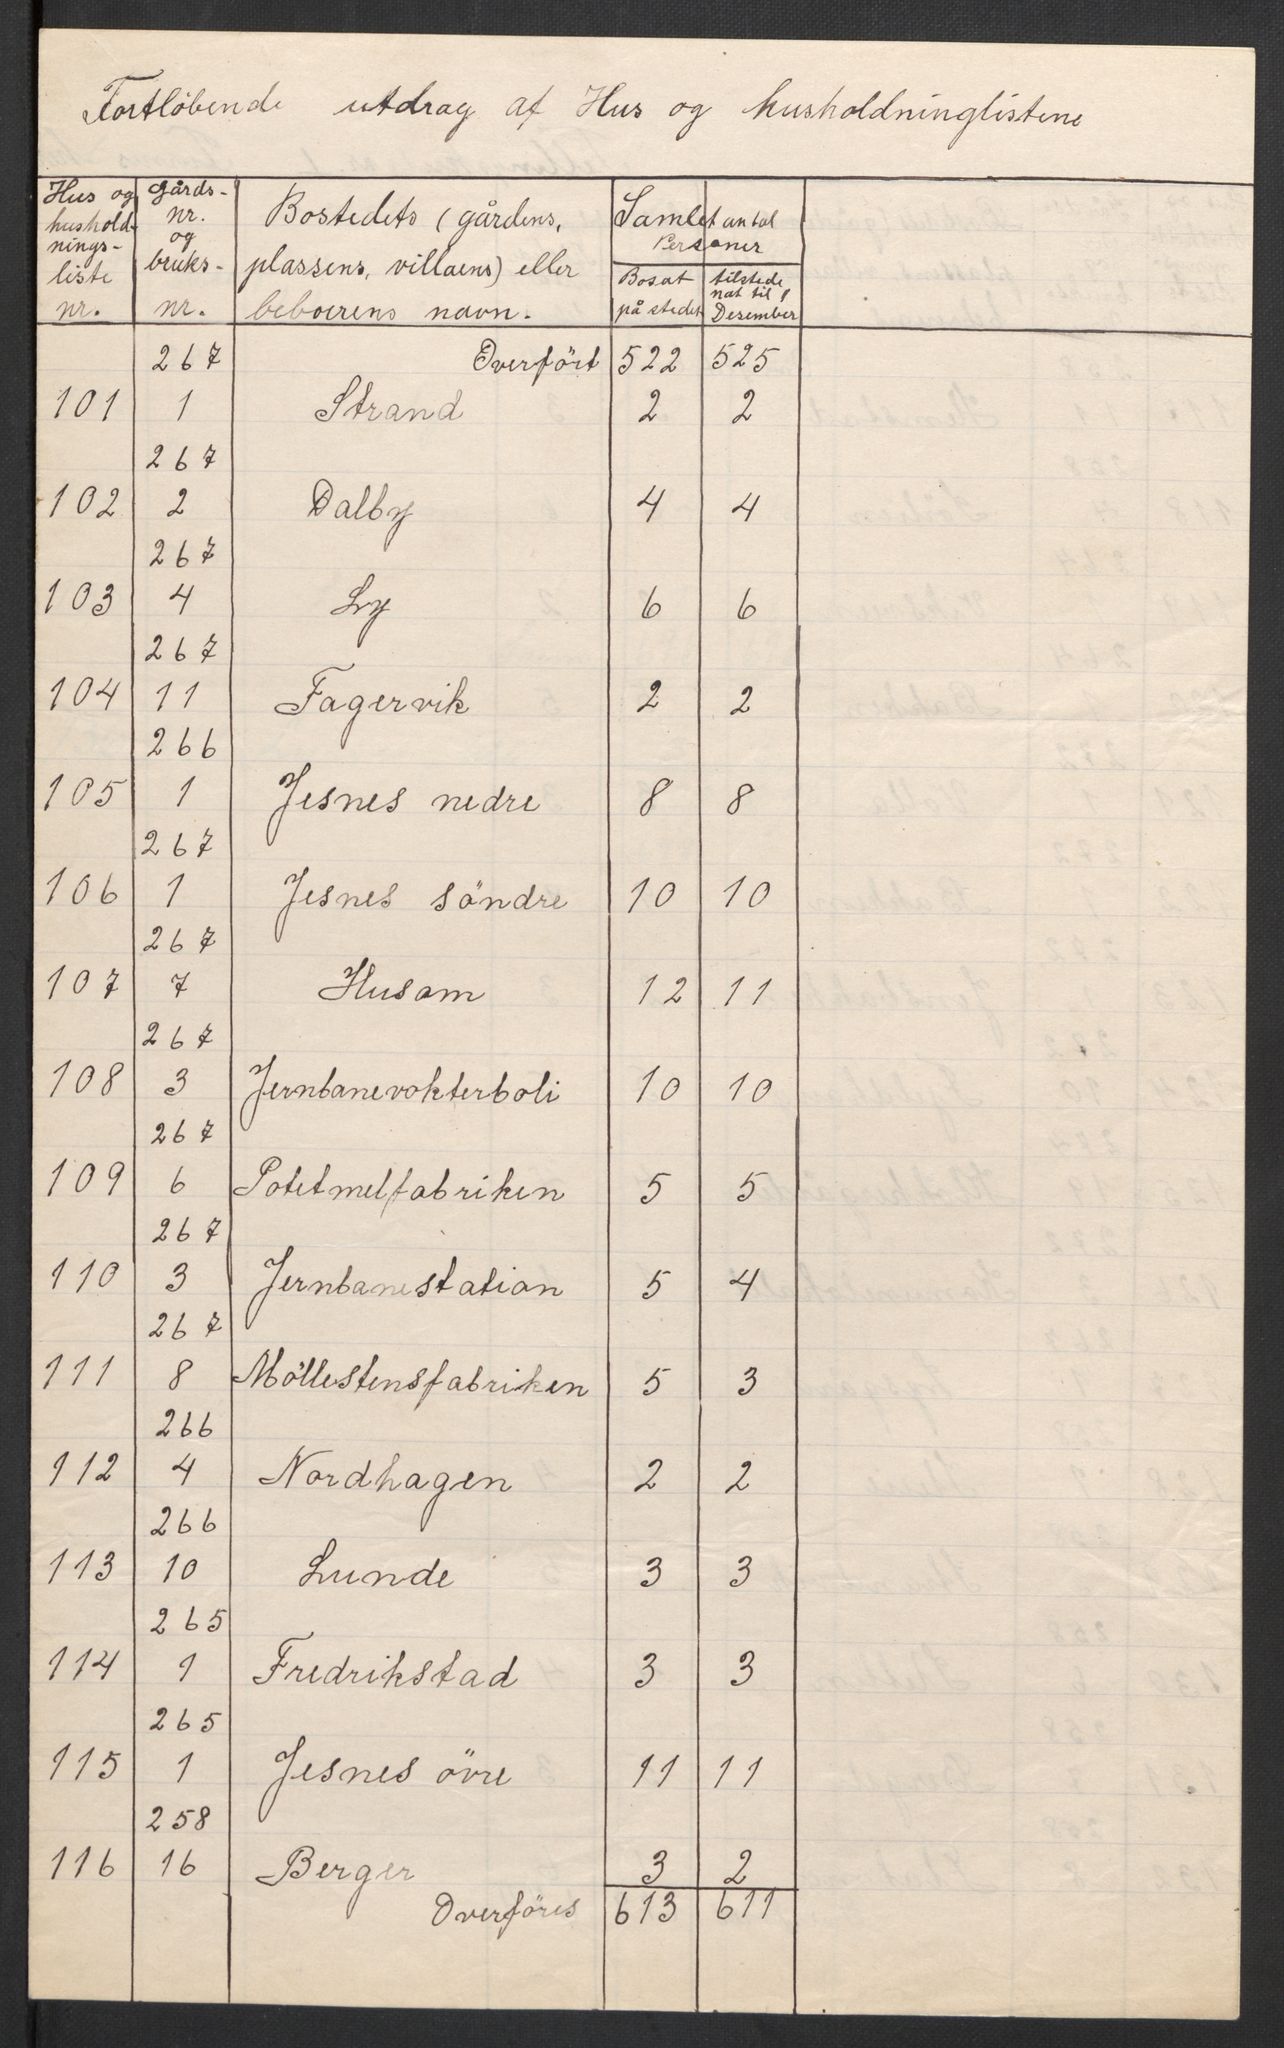 Fortløbende utdrag af Hus og husholdninglistene
Hus og hushold-nings-liste nr. | Gårds-nr. og bruks-nr. | Bostedets (gårdens, plassens, villaens) eller beboerens navn. | Samlet antal Personer
Bosat på stedet | tilstede nat til 1 Desember
267 Overfört 522 525
101 1 Strand 2 2
267
102 2 Dalby 4 4
267
103 4 Ly 6 6
267
104 11 Fagervik 2 2
266
105 1 Jesnes nedre 8 8
267
106 1 Jesnes söndre 10 10
267
107 7 Husom 12 11
267
108 3 Jernbanevokterboli 10 10
267
109 6 Potetmelfabriken 5 5
267
110 3 Jernbanestation 5 4
267
111 8 Möllestensfabriken 5 3
266
112 4 Nordhagen 2 2
266
113 10 Lunde 3 3
265
114 1 Fredrikstad 3 3
265
115 1 Jesnes övre 11 11
258
116 16 Berger 3 2
Overföres 613 611